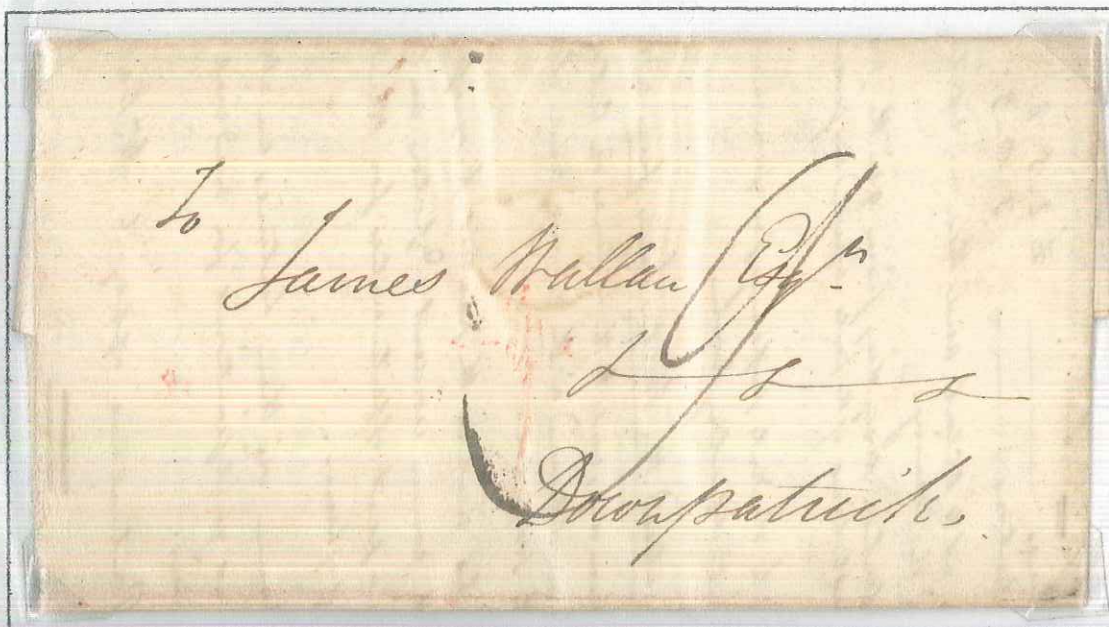 To
James Wallace Esqr
& & &
Downpatrick.
9